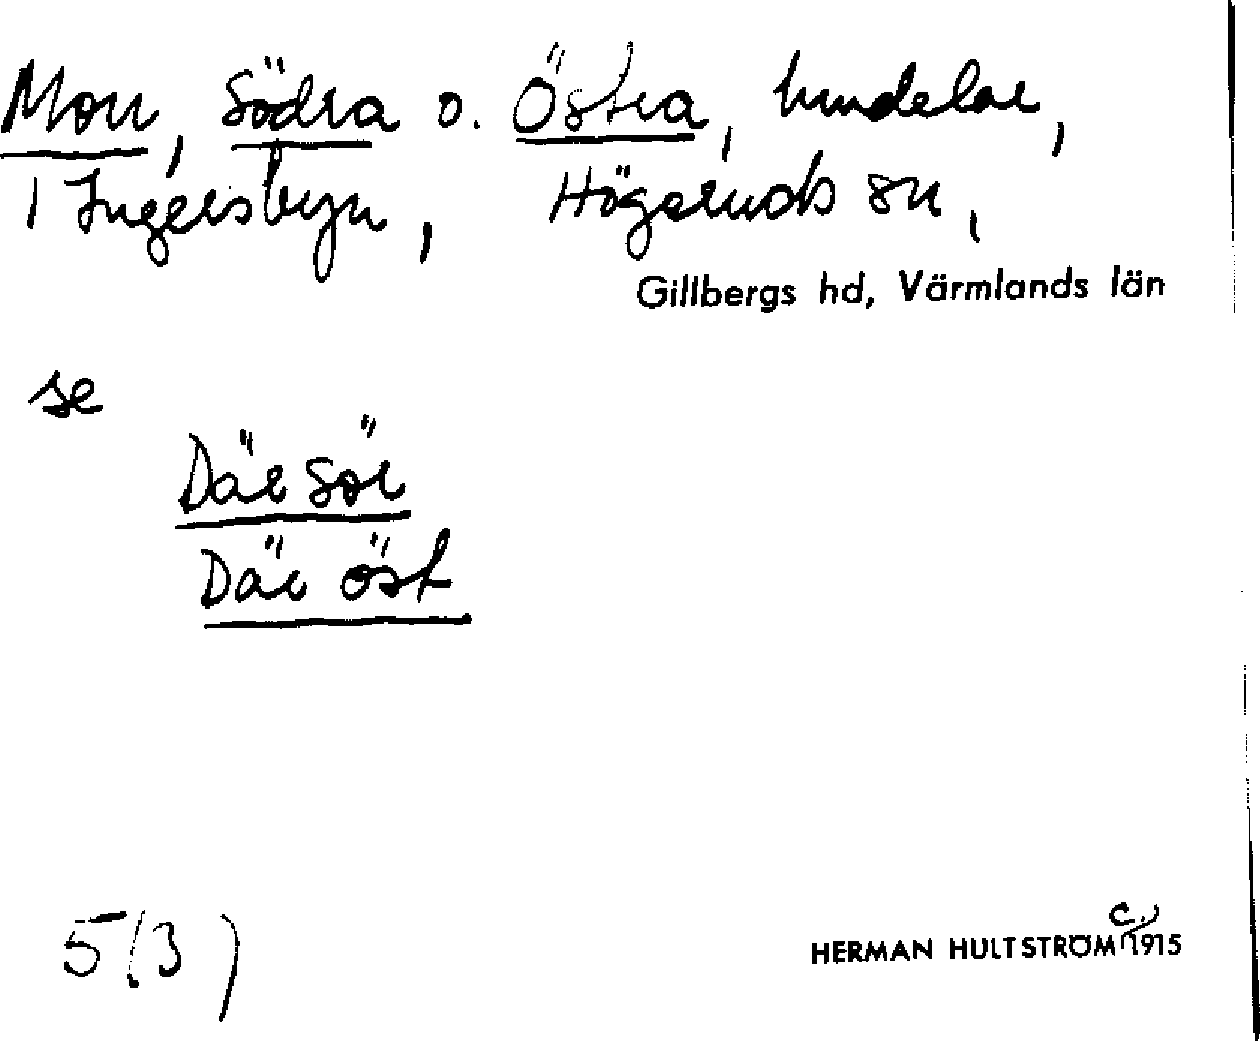 Mon, Södra o. Östra, hmdelar,
i Ingersbyn, Högeruds sn,
Gillbergs hd, Värmlands län
se
Där sör
Där öst
5(3)
HERMAN HULTSTRÖM c. 1915